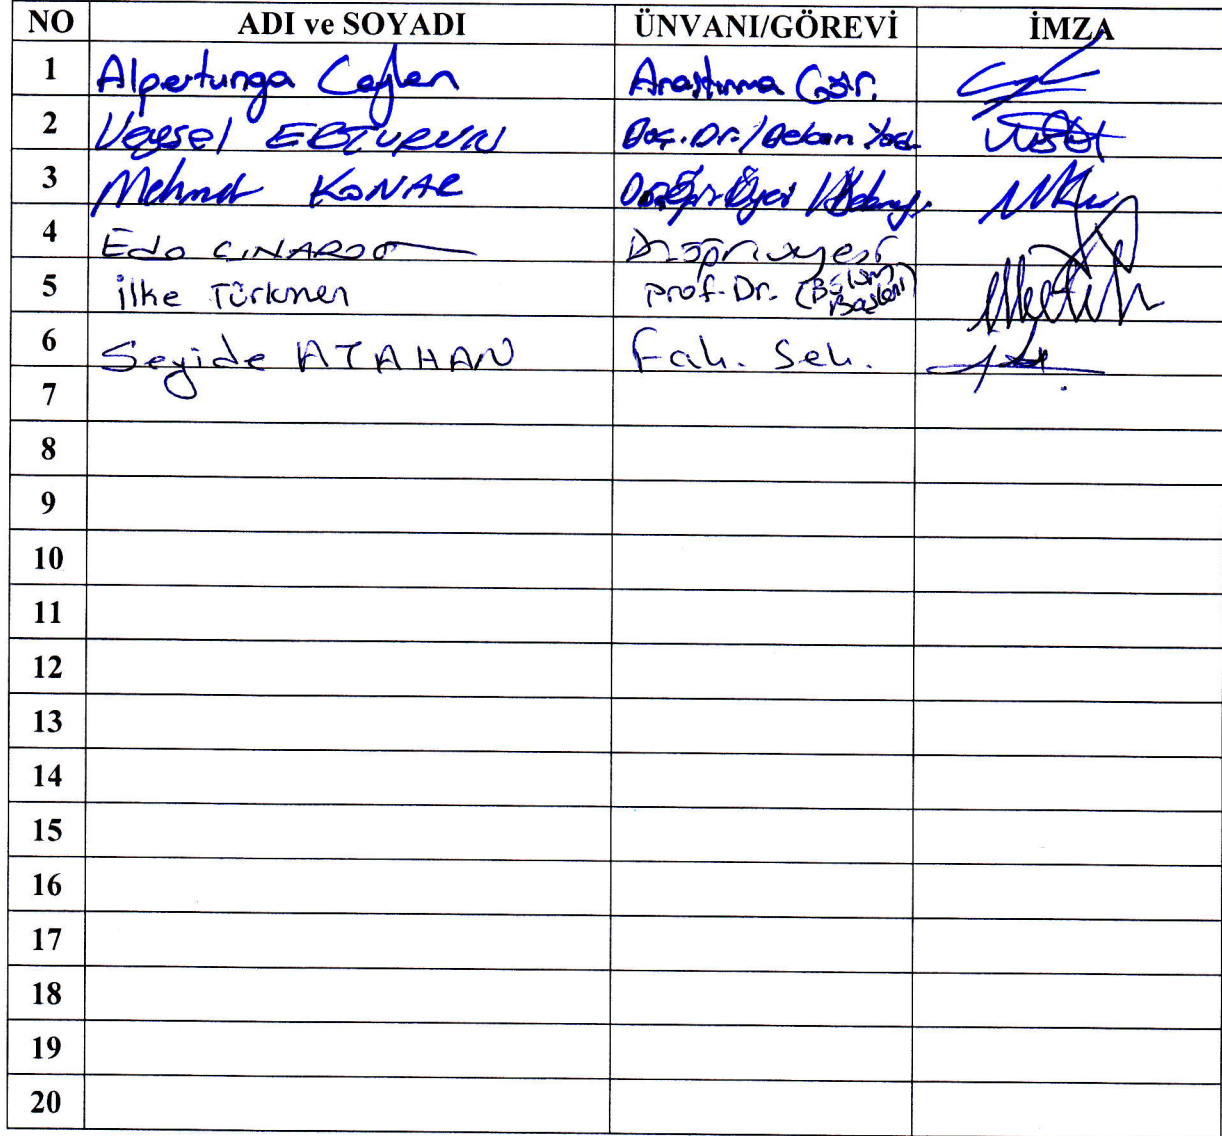 NO ADI ve SOYADI ÜNVANI/GÖREVİ İMZA
1 Alpertunga Araştırma Gör.
2 Veysel ERTURUN Doç.Dr./Dekan Yard.
3 Mehmet KONAR
4 Eda ÇINAROĞLU
5 ilke Türkmen Prof. Dr. (Bölüm
Başkanı)
6 Seyide ATAHAN Fak. Sek.
7
8
9
10
11
12
13
14
15
16
17
18
19
20